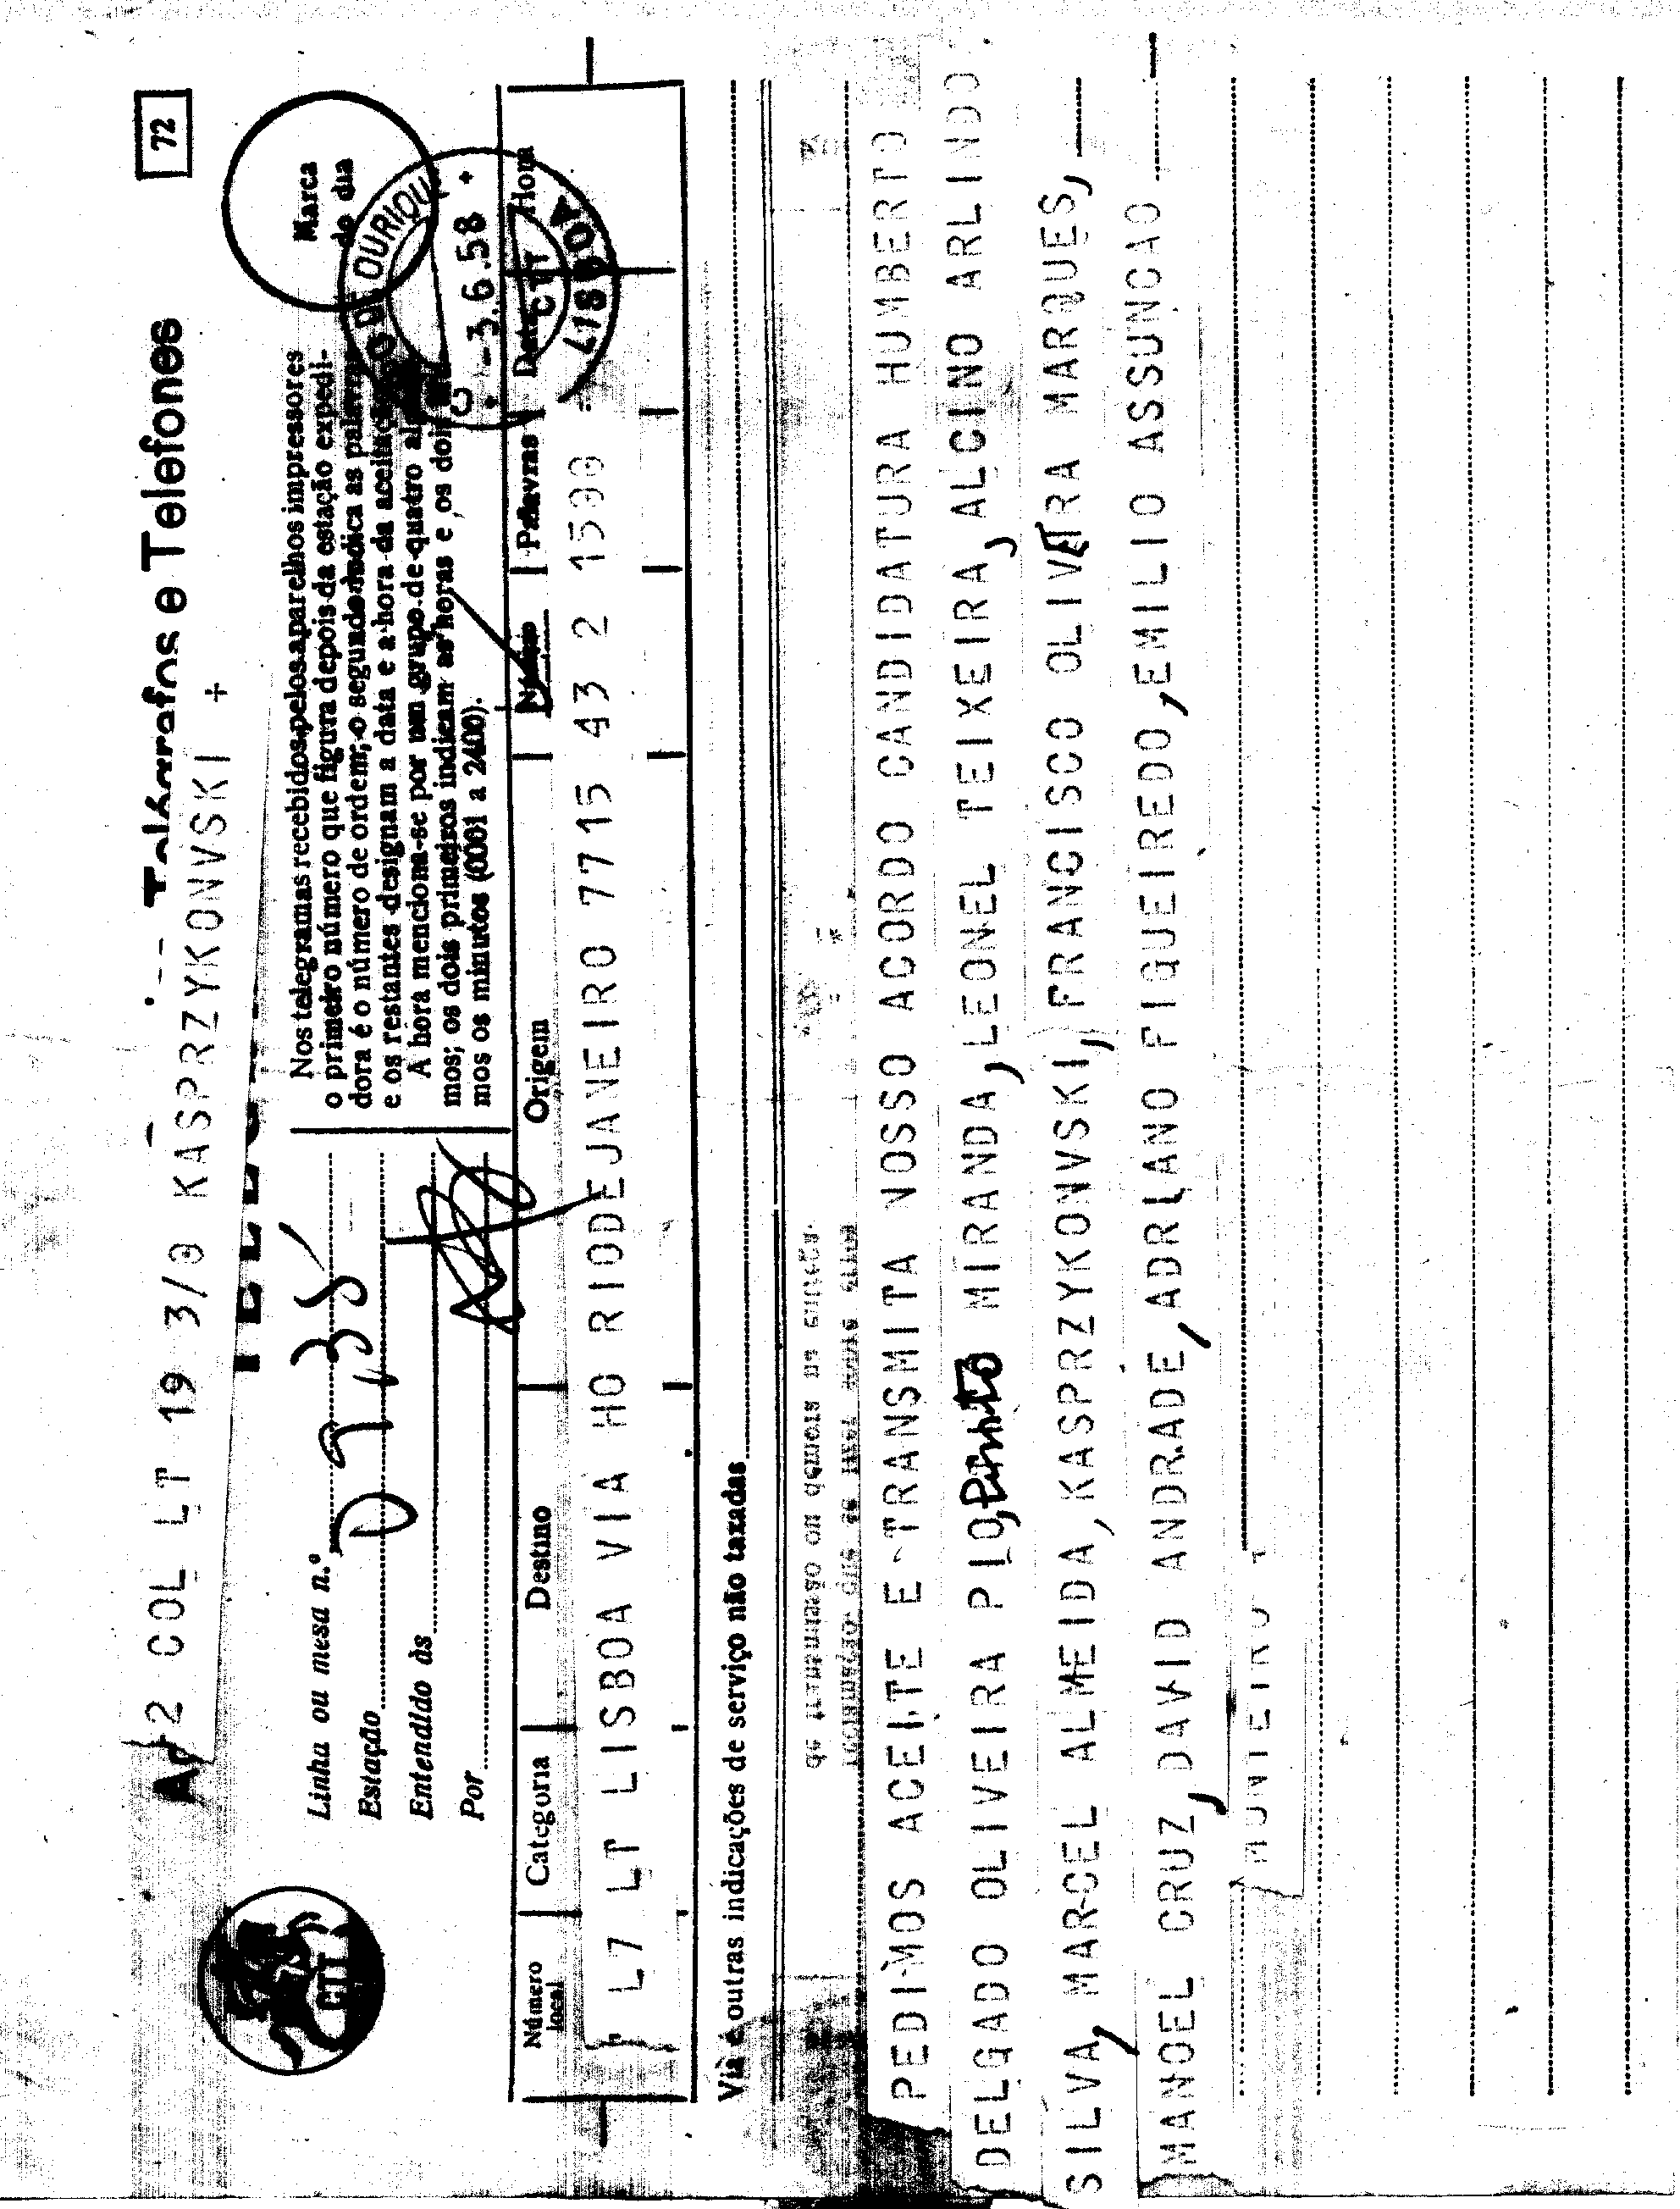 72
2 COL LT 19 3/0 KASPRZYKONVSKI +
e Telefones
CTT
Linha ou mesa n.º
Estação
Entendido às
Por
Nos telegramas recebidos pelos aparelhos impressores
o primeiro número que figura depois da estação expedi-
dora é o número de ordem; o segundo indica as palavras
e os restantes designam a data e a hora da aceitação
A hora menciona-se por um grupo de quatro
mos; os dois primeiros indicam as horas e os dois
mos os minutos (0001 a 2400).
Marca
do dia
DE OURIQUE
-3.6.58
CTT
LISBOA
Número
local
Categoria
Destino
Origem
Palavras
Data
Hora
L7 LT LISBOA VIA HO RIODEJANEIRO 7715 43 2 1500
Via e outras indicações de serviço não taxadas
PEDIMOS ACEITE E TRANSMITA NOSSO ACORDO CANDIDATURA HUMBERTO
DELGADO OLIVEIRA PIO, Pinto MIRANDA, LEONEL TEIXEIRA, ALCINO ARLINDO
SILVA, MARCEL ALMEIDA, KASPRZYKONVSKI, FRANCISCO OLIVEIRA MARQUES,
MANOEL CRUZ, DAVID ANDRADE, ADRIANO FIGUEIREDO, EMILIO ASSUNCAO
MONTEIRO